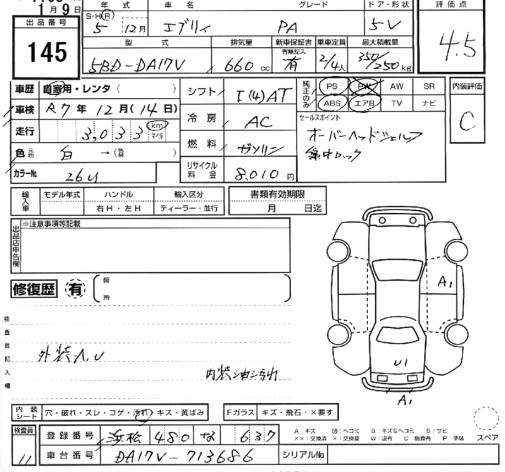 1月9日
年式 車名 グレード ドア・形状 評価点
出品番号
S・H(R) 5年 12月 エブリィ PA 5V
145
型式 排気量 新車保証書 乗車定員 最大積載量
有無記入
5BD-DA17V 660cc 有 2/4人 350/250kg
4.5
車歴 自家用・レンタ( )
シフト I(4)AT
純正のみ PS PW AW SR
ABS エアB TV ナビ
内装評価
車検 R7年12月(14日)
冷房 AC
セールスポイント
C
走行 3,033 km マイル
燃料 ガソリン
オーバーヘッドシェルフ
集中ロック
色 元色 白 →(色 )
カラーNo 26U
リサイクル料金 8,010円
輸入車 モデル年式 ハンドル 輸入区分 書類有効期限
右H・左H ディーラー・並行 月 日迄
出品店申告欄
※注意事項等記載
修復歴 有 箇所
A1
検査員記入欄
外装A,U
内装油汚れ
U1
A1
内装シート 穴・破れ・スレ・コゲ・汚れ・キズ・黄ばみ
Fガラス キズ・飛石・×要す
スペア
検査員 11
登録番号 浜松 480 な 637
A:キズ U:ヘコミ B:キズ&ヘコミ S:サビ
××:交換済 X:交換要 W:波有 C:腐食有 P:塗装
車台番号 DA17V-713686 シリアルNo.